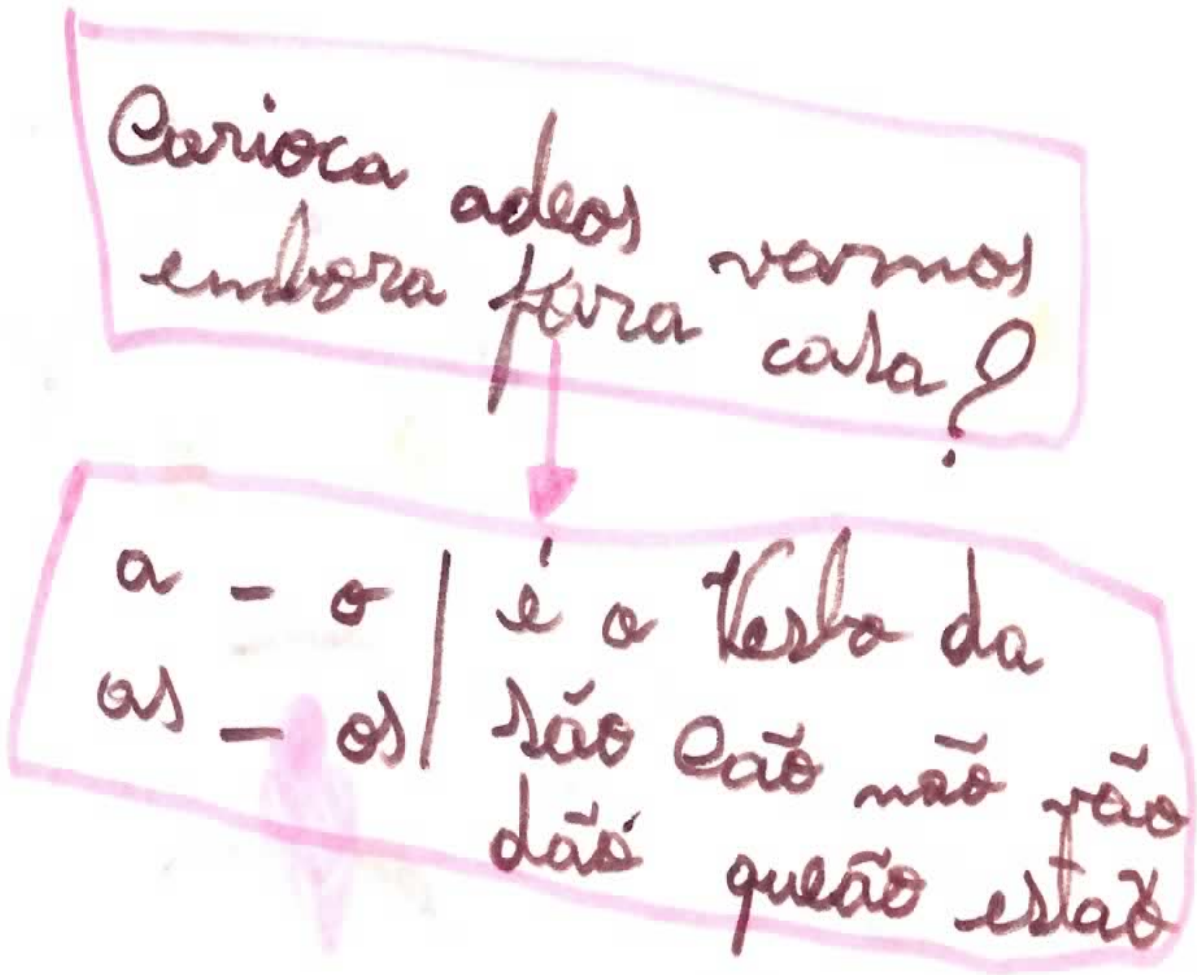 Carioca adeos vamos
embora para casa?
a - o | é o Verbo da
as - os | são Cão não vão
dão queão estão